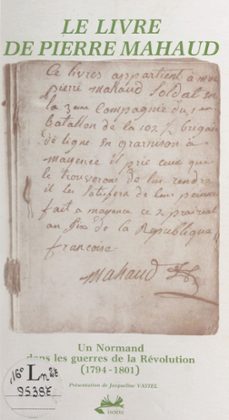 LE LIVRE
DE PIERRE MAHAUD
Ce livres appartient à moi
pierré mahaud Soldat en
la 3me Compagnie du
batallon de la 102 brigade
de ligne En garnison à
mayence il prie ceux que
le trouveront de lui rendre
il les satifera de leur peine
fait a mayence ce 2 prairial
an Six de la Republique
francoise
Mahaud
Un Normand
dans les guerres de la Révolution
(1794-1801)
Présentation de Jacqueline VASTEL
16° Ln27
95395